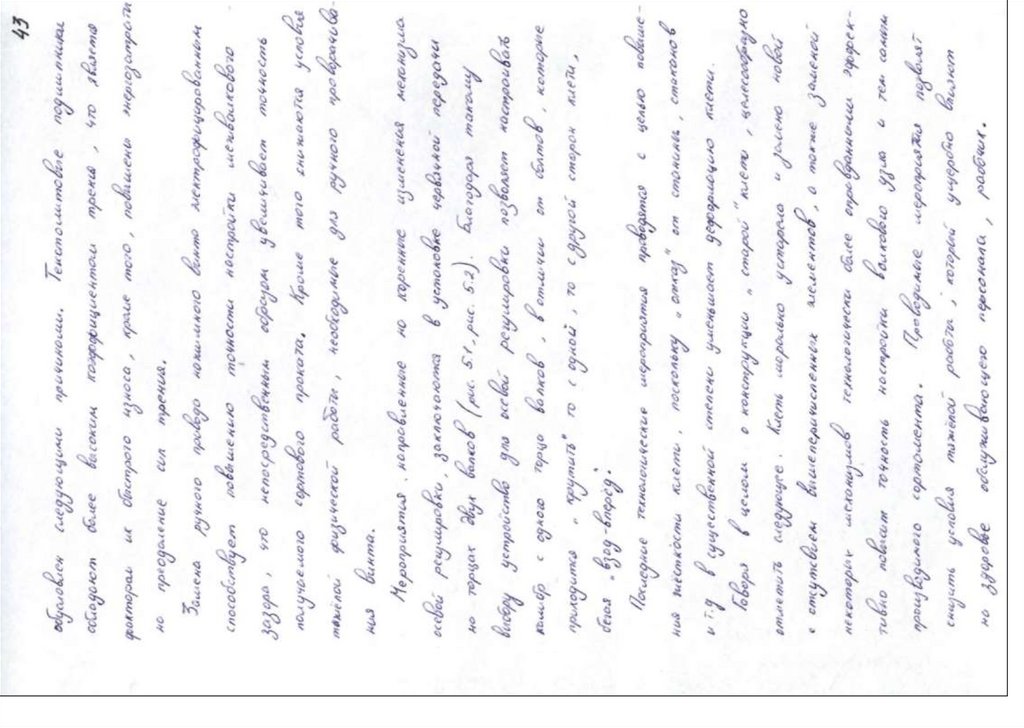 43
обусловлен следующими причинами. Текстолитовые подшипники
обладают более высоким коэффициентом трения, что является
фактором их быстрого износа, кроме того, повышены энергозатраты
на преодоление сил трения.
Замена ручного привода нажимного винта электрифицированным
способствует повышению точности настройки межвалкового
зазора, что непосредственным образом увеличивает точность
получаемого сортового проката. Кроме того снижаются условия
тяжёлой физической работы, необходимые для ручного проворачива-
ния винта.
Мероприятия, направленные на коренное изменение механизма
осевой регулировки, заключаются в установке червячной передачи
на торцах двух валков (рис. 5.1, рис. 5.2). Благодаря такому
выбору устройство для осевой регулировки позволяет настраивать
калибр с одного торца валков, в отличии от болтов, которые
приходится „крутить" то с одной, то с другой сторон клети,
бегая „взад-вперёд".
Последние технологические мероприятия проводятся с целью повыше-
ния жёсткости клети, поскольку „отказ" от станин, стаканов
и т.д в существенной степени уменьшает деформацию клети.
Говоря в целом о конструкции „старой" клети, целесообразно
отметить следующее. Клеть морально „устарела" и замена новой
с отсутствием вышеперечисленных элементов, а также заменой
некоторых механизмов технологически более оправданными эффек-
тивно повысит точность настройки валкового узла и тем самым
производимого сортамента. Проводимые мероприятия позволят
снизить условия тяжёлой работы, которые ущербно влияют
на здоровье обслуживающего персонала, рабочих.